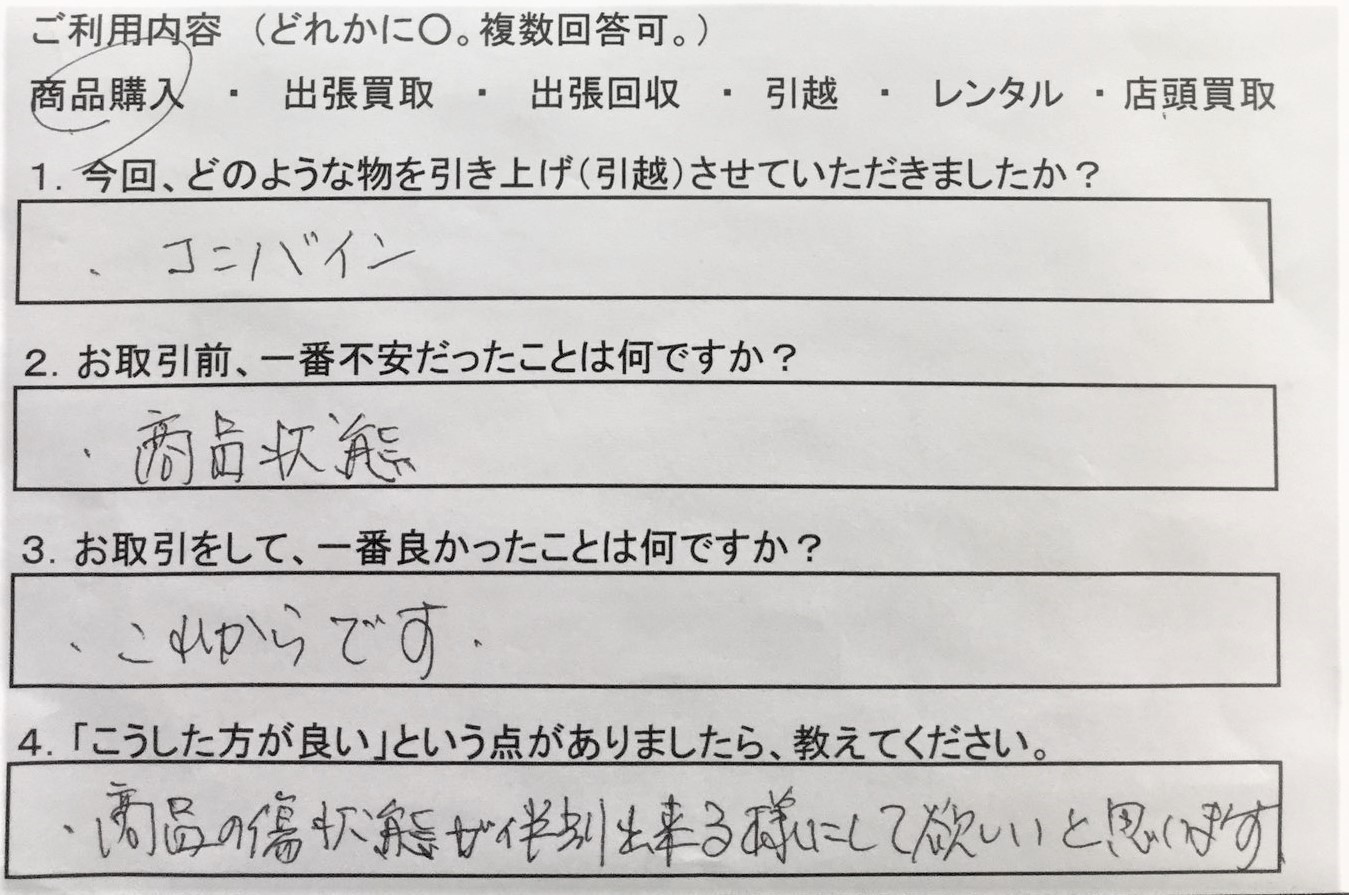 ご利用内容（どれかに〇。複数回答可。）
商品購入 ・ 出張買取 ・ 出張回収 ・ 引越 ・ レンタル ・ 店頭買取
1. 今回、どのような物を引き上げ（引越）させていただきましたか？
・ コンバイン
2. お取引前、一番不安だったことは何ですか？
・ 商品状態
3. お取引をして、一番良かったことは何ですか？
・ これからです・
4. 「こうした方が良い」という点がありましたら、教えてください。
・ 商品の傷状態が判別出来る様にして欲しいと思います